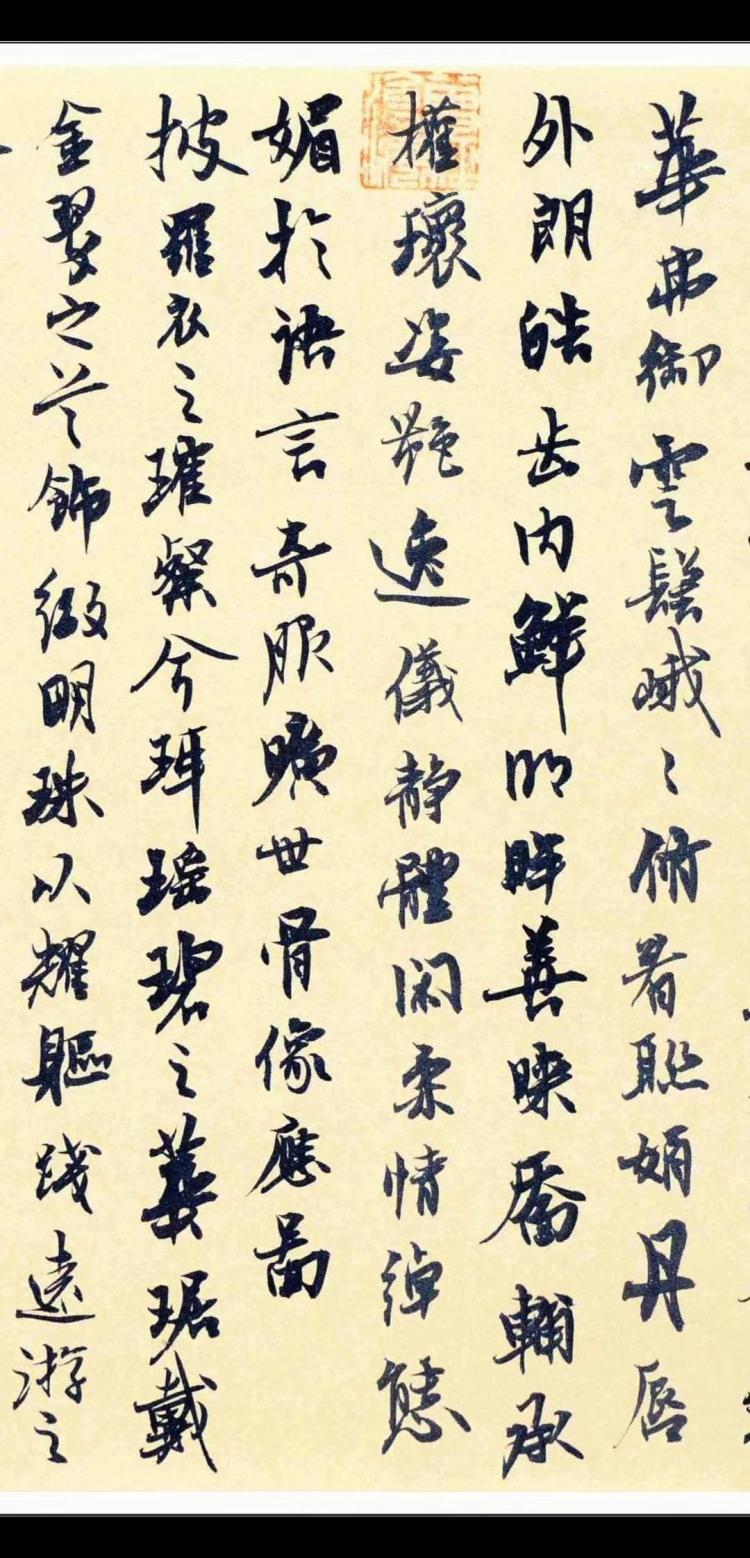 華弗御雲髻峨〻脩眉聯娟丹唇
外朗皓齿内鮮明眸善睞靥輔承
權瓌姿艶逸儀静體閑柔情綽態
媚於語言奇服曠世骨像應啚
披羅衣之璀粲兮珥瑶碧之華琚戴
金翠之首飾綴明珠以耀軀踐遠游之